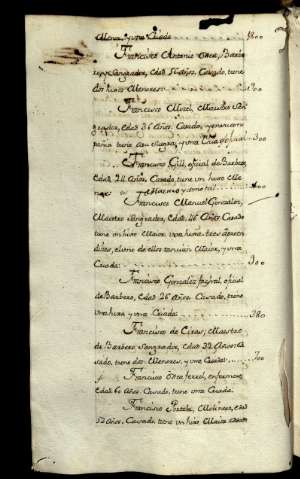 Menor, y una Criada 1800
Francisco Antonio Barbero
y Sangrador, edad 51 años, Casado, tiene
dos hijos Menores 1200
Francisco Maestro San-
grador, edad 36 años, Casado, y en su com-
pañia tiene a su suegra, y una Criada 300
Francisco Gil, oficial de Barbero,
edad 24 años, Casado, tiene un hijo Me-
nor
Francisco Manuel Gonzalez,
Maestro Sangrador, edad 46 años Casado
tiene un hijo Maior, una hija, tres apren-
dizes, el uno de ellos tambien Maior, y una
Criada 300
Francisco Gonzalez oficial
de Barbero, edad 26 años, Casado, tiene
una hija y una Criada 380
Francisco de Maestro
de Barbero, Sangrador, edad 32 años, Ca-
sado, tiene dos Menores, y una Criada 700
Francisco enfermero
edad 60 años, Casado, tiene una Criada
Francisco Molinero, edad
52 años, Casado, tiene un hijo Maior